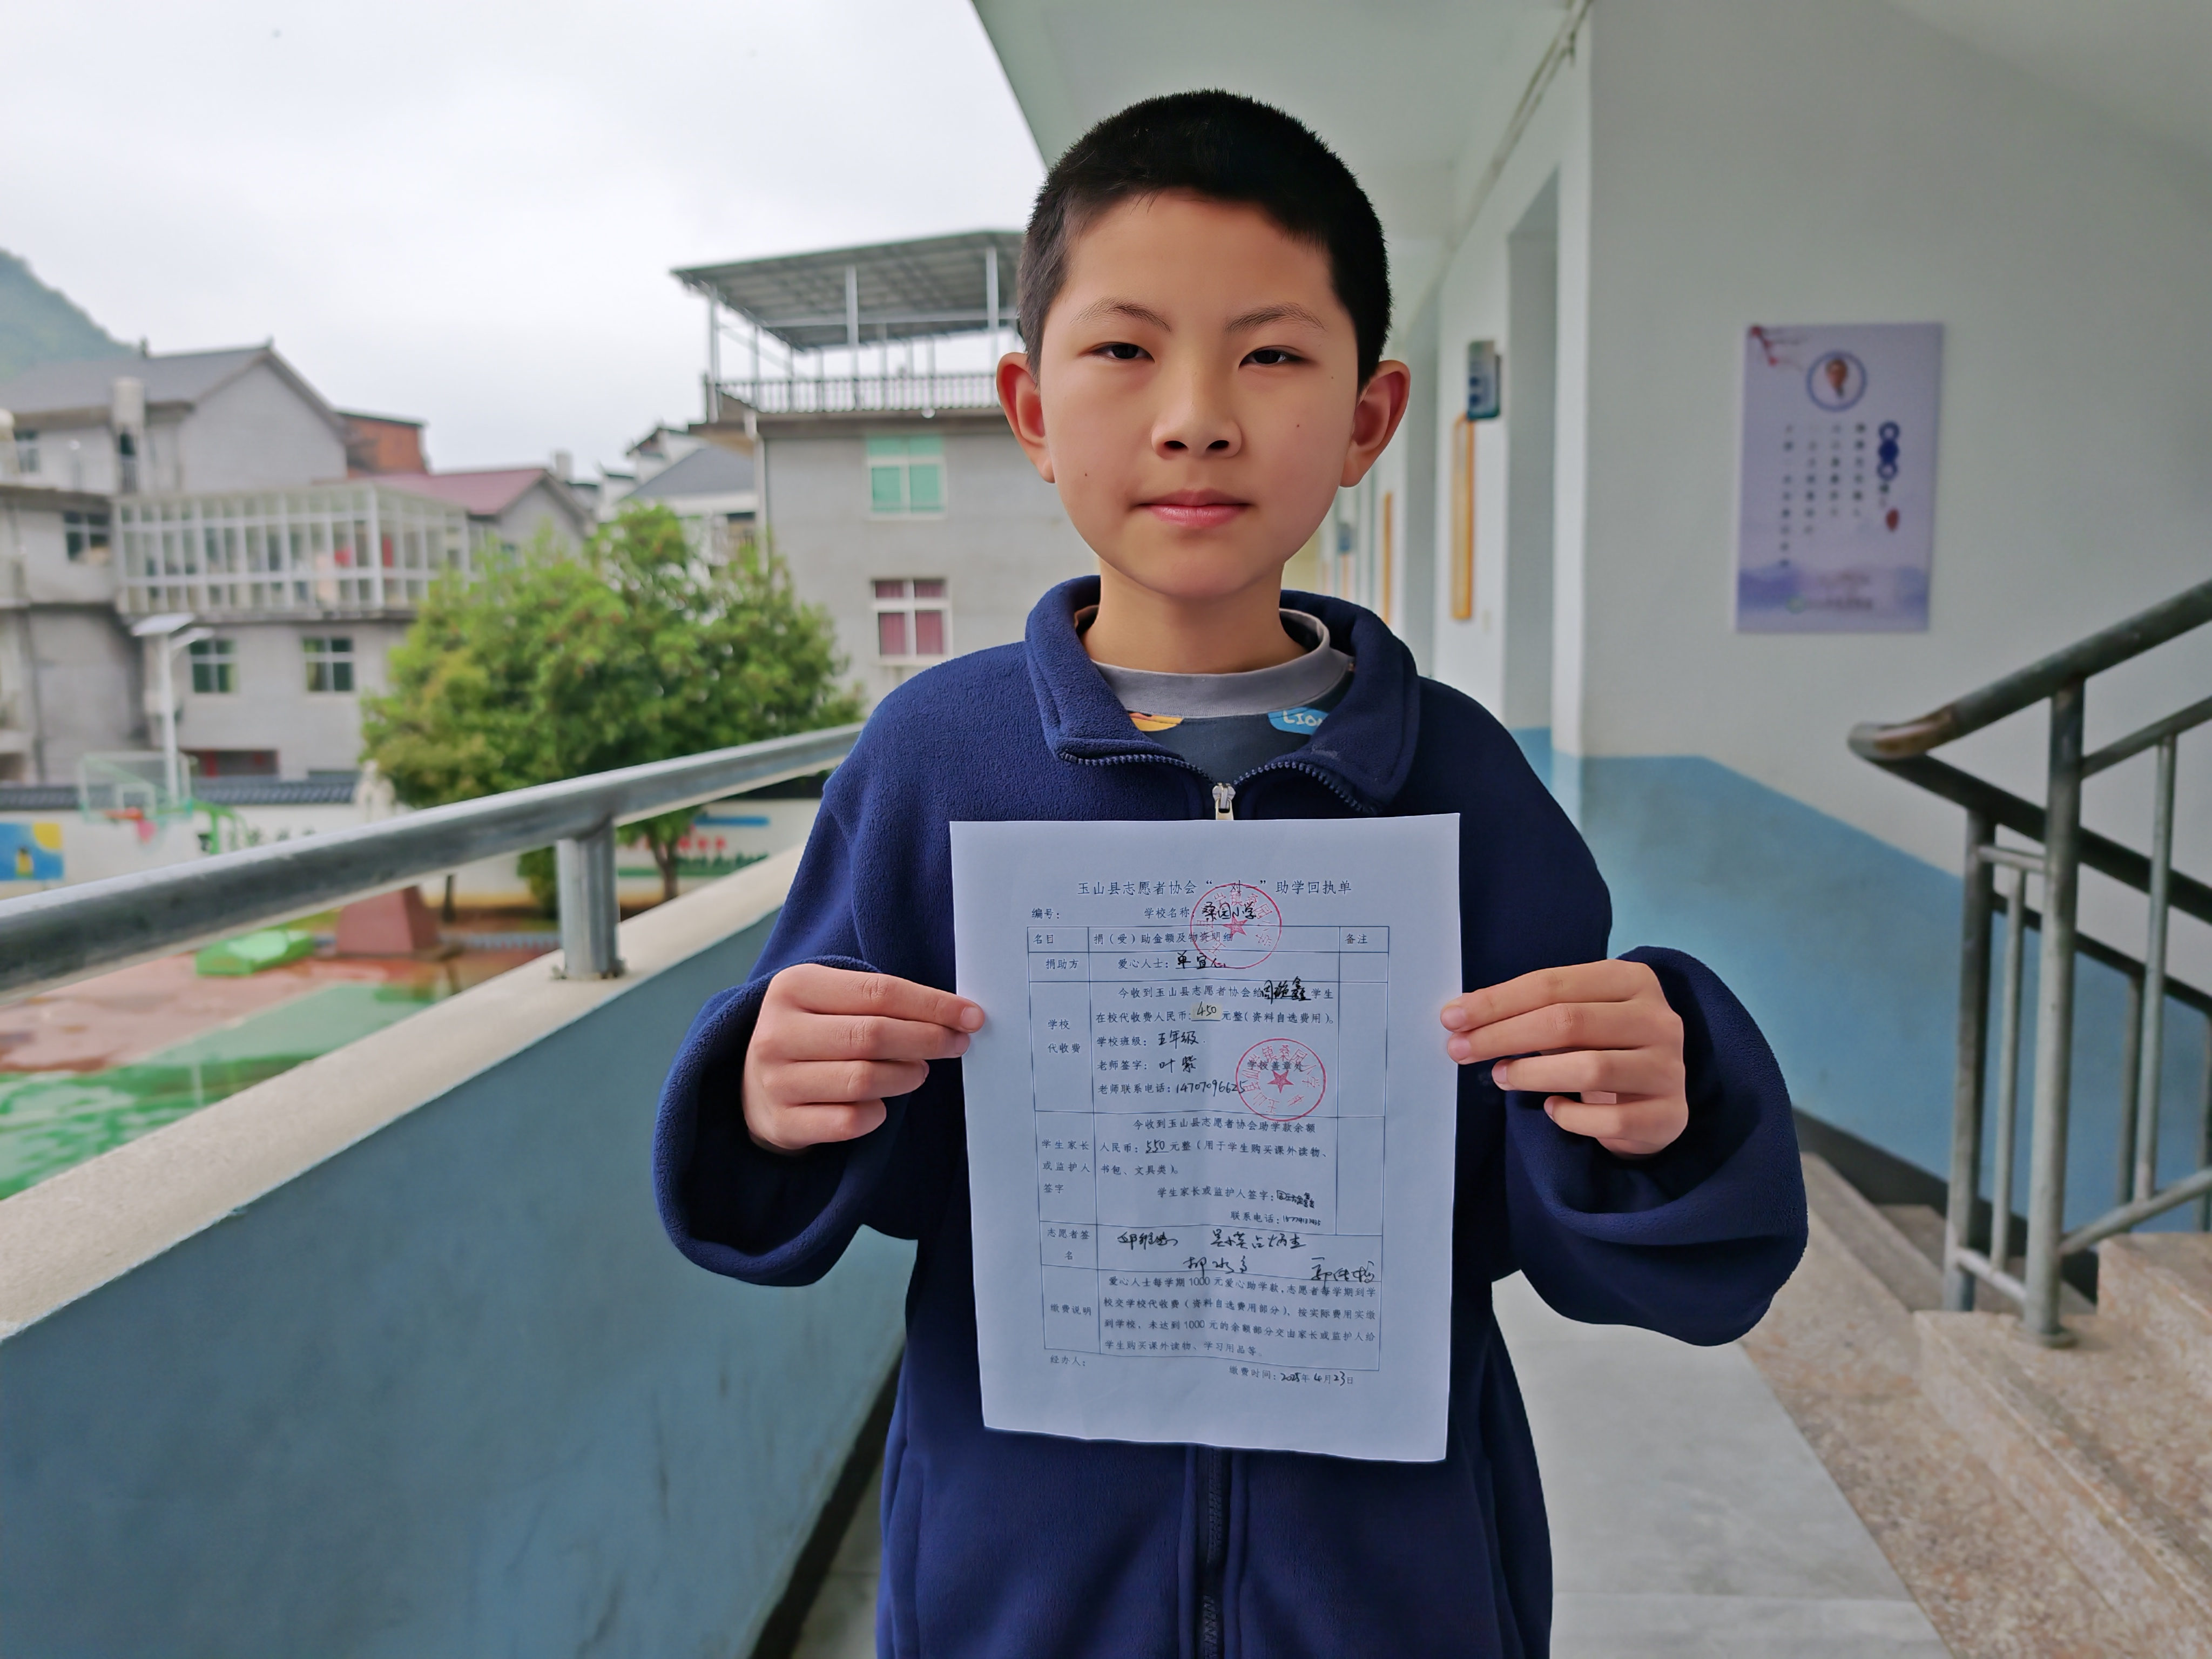 LION
玉山县志愿者协会“一对一”助学回执单
编号： 学校名称：桑园小学
名目 捐（受）助金额及物资明细 备注
捐助方 爱心人士：单宜仁
今收到玉山县志愿者协会给 学生
在校代收费人民币：450元整（资料自选费用）。
学校代收费
学校班级：五年级
老师签字：叶紫
学校盖章处
老师联系电话：14707096625
今收到玉山县志愿者协会助学款余额
学生家长或监护人签字
人民币：550元整（用于学生购买课外读物、
书包、文具类）。
学生家长或监护人签字：
联系电话：
志愿者签名
缴费说明
爱心人士每学期1000元爱心助学款，志愿者每学期到学
校交学校代收费（资料自选费用部分），按实际费用实缴
到学校、未达到1000元的余额部分交由家长或监护人给
学生购买课外读物、学习用品等。
经办人：
缴费时间：2025年4月23日